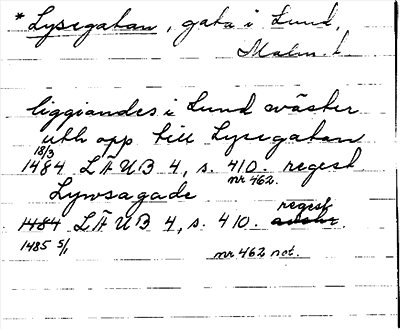 * Lysegatan, gata i Lund,
Malm. l.
liggiandes i Lund wäster
uth opp till Lysegatan
18/3
1484 LÄUB 4, s. 410. regest
nr 462.
Lywsagade
regest
1484 LÄUB 4, s. 410.
1485 5/1
nr 462 not.